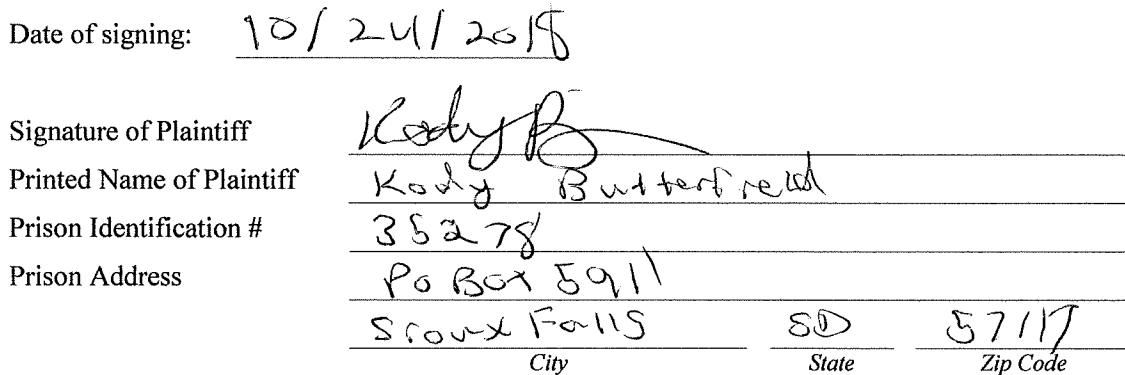 Date of signing: 10/24/2018
Signature of Plaintiff Kody B
Printed Name of Plaintiff Kody Butterfield
Prison Identification # 35278
Prison Address Po Box 5911
Sioux Falls SD 57117
City State Zip Code